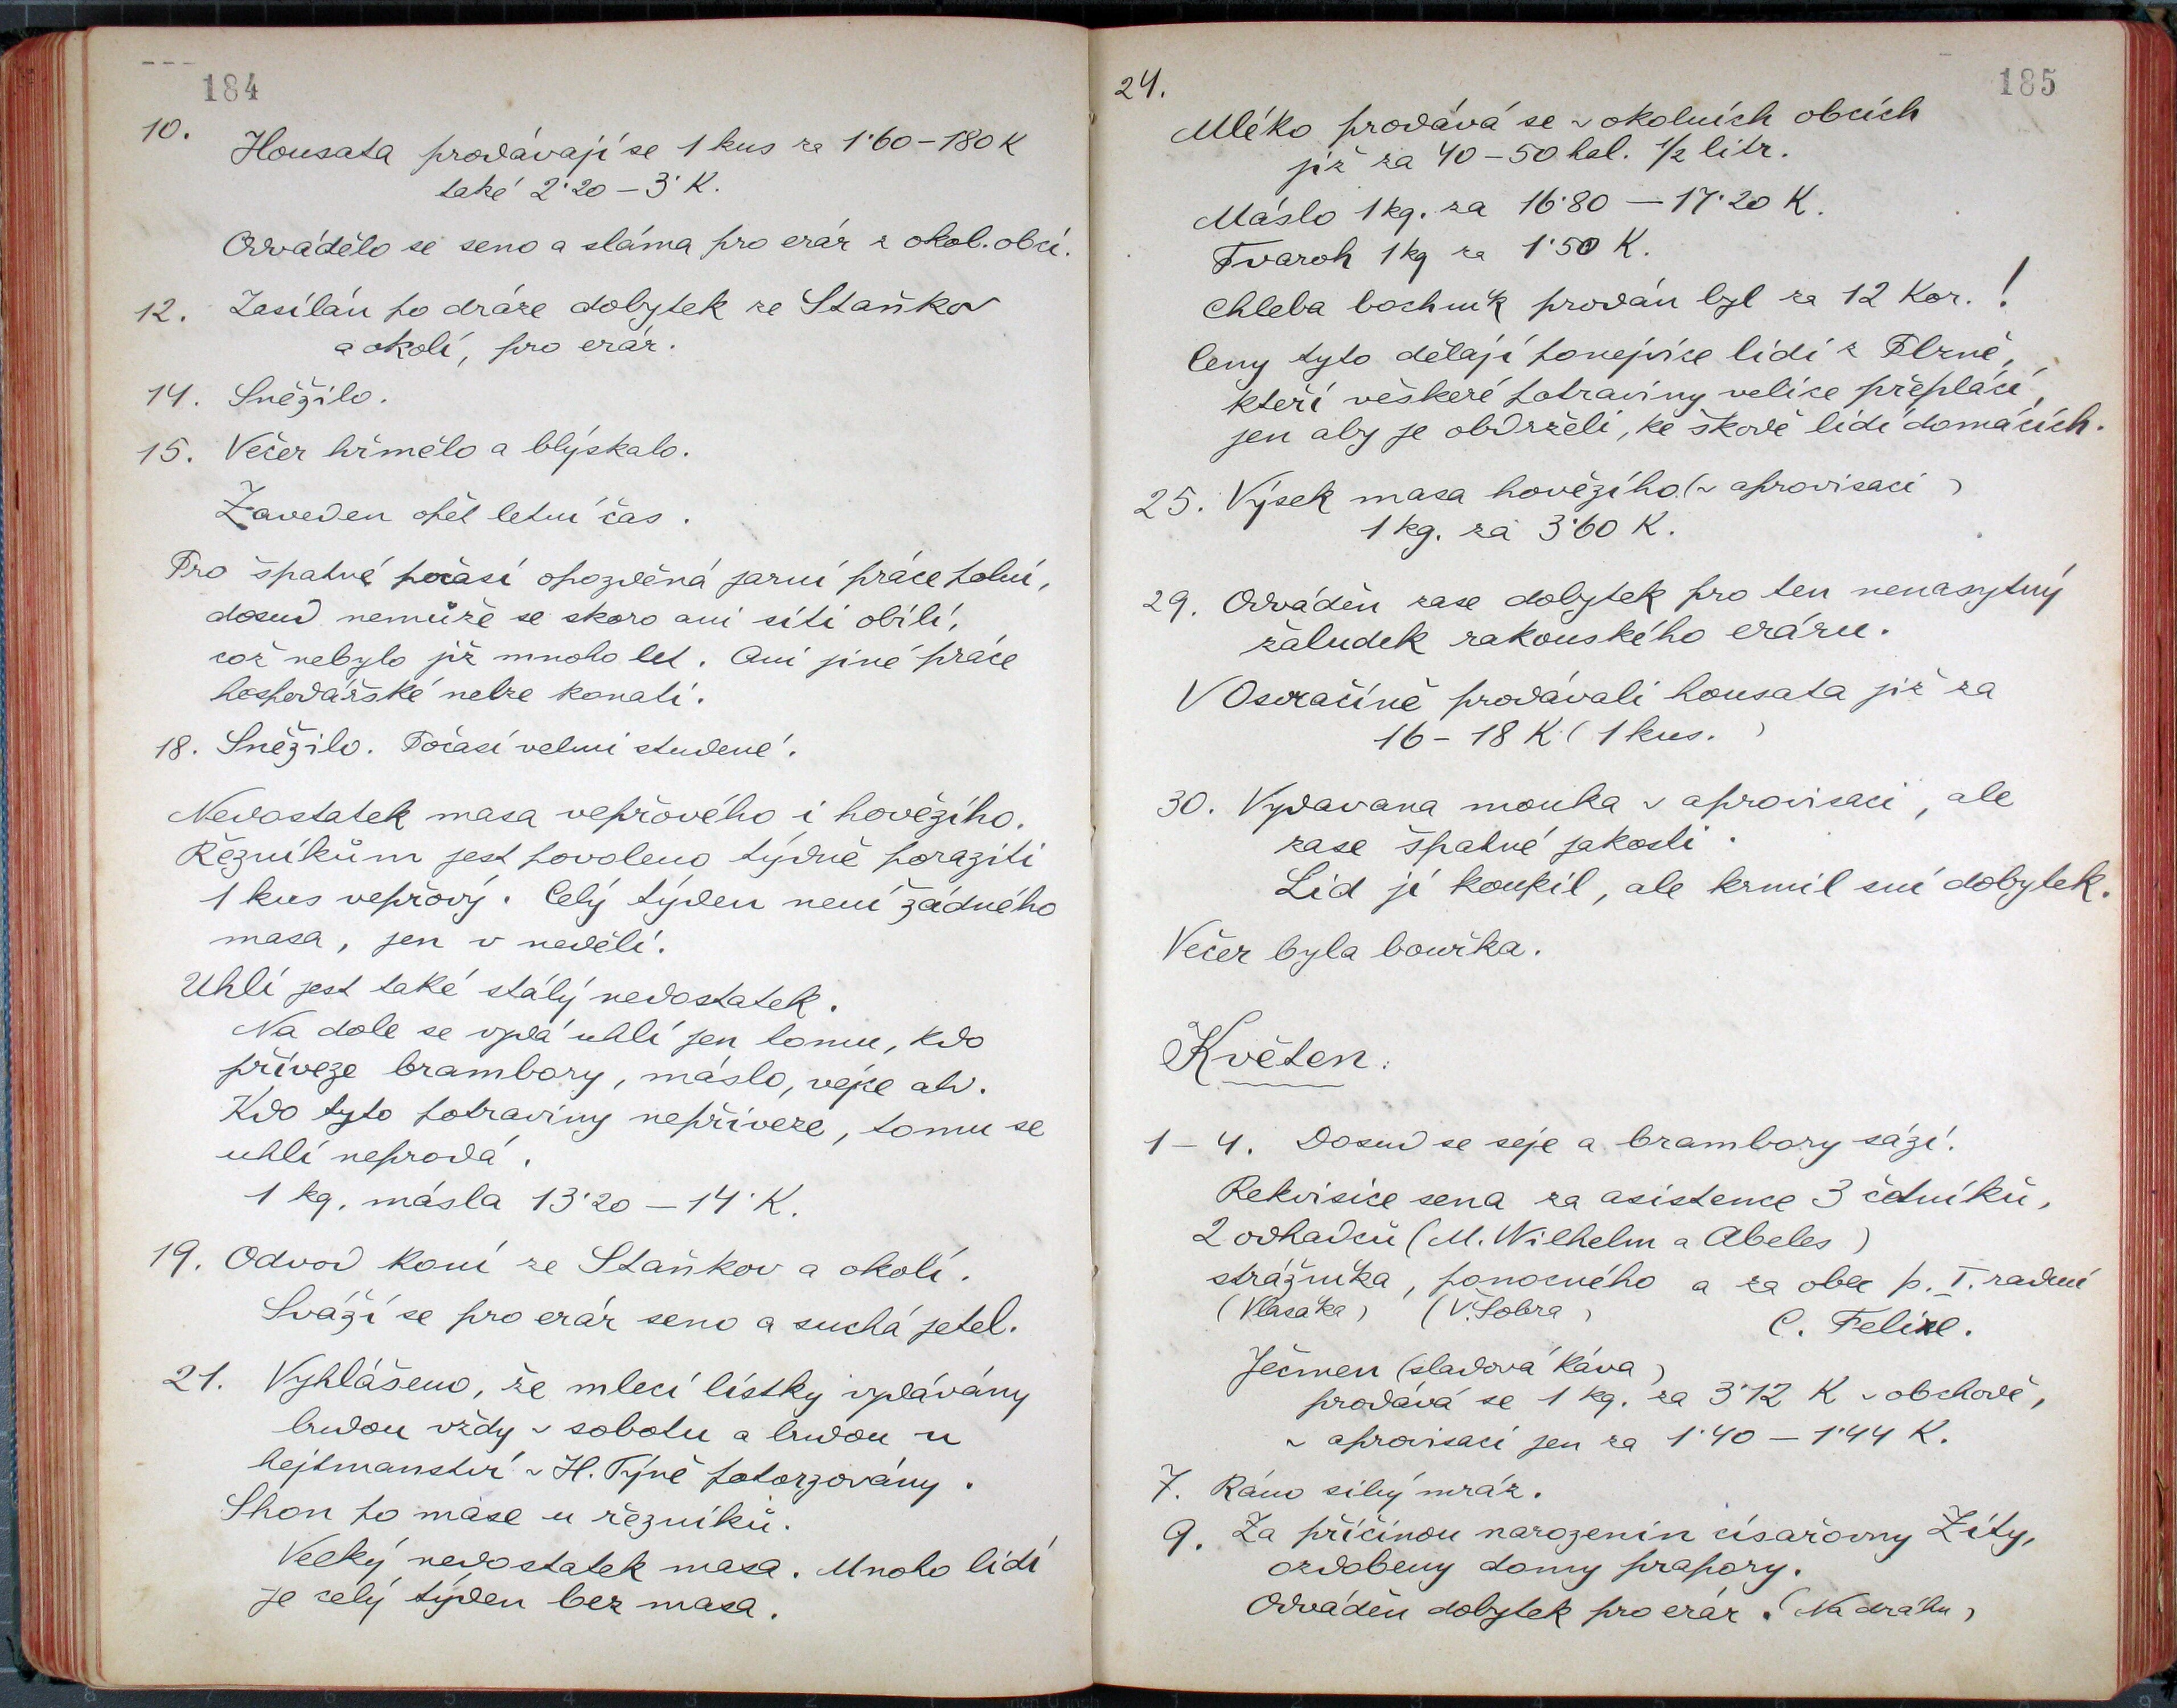 184
10. Housata prodávají se 1 kus za 1·60-180 K
také 2·20 - 3· K.
Odvádělo se seno a sláma pro erár z okol. obcí.
12. Zasílán po dráze dobytek ze Staňkov
a okolí, pro erár.
14. Sněžilo.
15. Večer hřmělo a blýskalo.
Zaveden opět letní čas.
Pro špatné počasí opozděná jarní práce polní,
dosud nemůže se skoro ani síti obílí,
což nebylo již mnoho let. Ani jiné práce
hospodářské nelze konati.
18. Sněžilo. Počasí velmi studené.
Nedostatek masa vepřového i hovězího.
Řezníkům jest povoleno týdně poraziti
1 kus vepřový. Celý týden není žádného
masa, jen v neděli.
Uhlí jest také stálý nedostatek.
Na dole se vydá uhlí jen tomu, kdo
přiveze brambory, máslo, vejce atd.
Kdo tyto potraviny nepřiveze, tomu se
uhlí neprodá.
1 kg. másla 13·20 - 14· K.
19. Odvod koní ze Staňkov a okolí.
Sváží se pro erár seno a suchá jetel.
21. Vyhlášeno, že mlecí lístky vydávány
budou vždy v sobotu a budou u
hejtmanství v H. Týně potvrzovány.
Shon po mase u řezníků.
Velký nedostatek masa. Mnoho lidí
je celý týden bez masa.
185
24.
Mléko prodává se v okolních obcích
již za 40 - 50 hal. 1/2 litr.
Máslo 1 kg. za 16·80 - 17·20 K.
Tvaroh 1 kg za 1·50 K.
Chleba bochník prodán byl za 12 Kor. !
Ceny tyto dělají ponejvíce lidi z Plzně,
kteří veškeré potraviny velice přeplácí,
jen aby je obdrželi, ke škodě lidí domácích.
25. Výsek masa hovězího (v aprovisaci)
1 kg. za 3·60 K.
29. Odváděn zase dobytek pro ten nenasytný
žaludek rakouského eráru.
V Osvračíně prodávali housata již za
16 - 18 K (1 kus.)
30. Vydavana mouka v aprovisaci, ale
zase špatné jakosti.
Lid jí koupil, ale krmil sní dobytek.
Večer byla bouřka.
Květen.
1 - 4. Dosud se seje a brambory sází.
Rekvisice sena za asistence 3 četníků,
2 odhadců (M. Wilhelm a Abeles)
strážníka, ponocného a za obec p. I. radní
(Vlasáka) (V. Sobra) C. Felixe.
Ječmen (sladová káva)
prodává se 1 kg. za 3·12 K v obchodě,
v aprovisaci jen za 1·40 - 1·44 K.
7. Ráno silný mráz.
9. Za příčinou narozenin císařovny Zity,
ozdobeny domy prapory.
Odváděn dobytek pro erár. (Na dráhu)